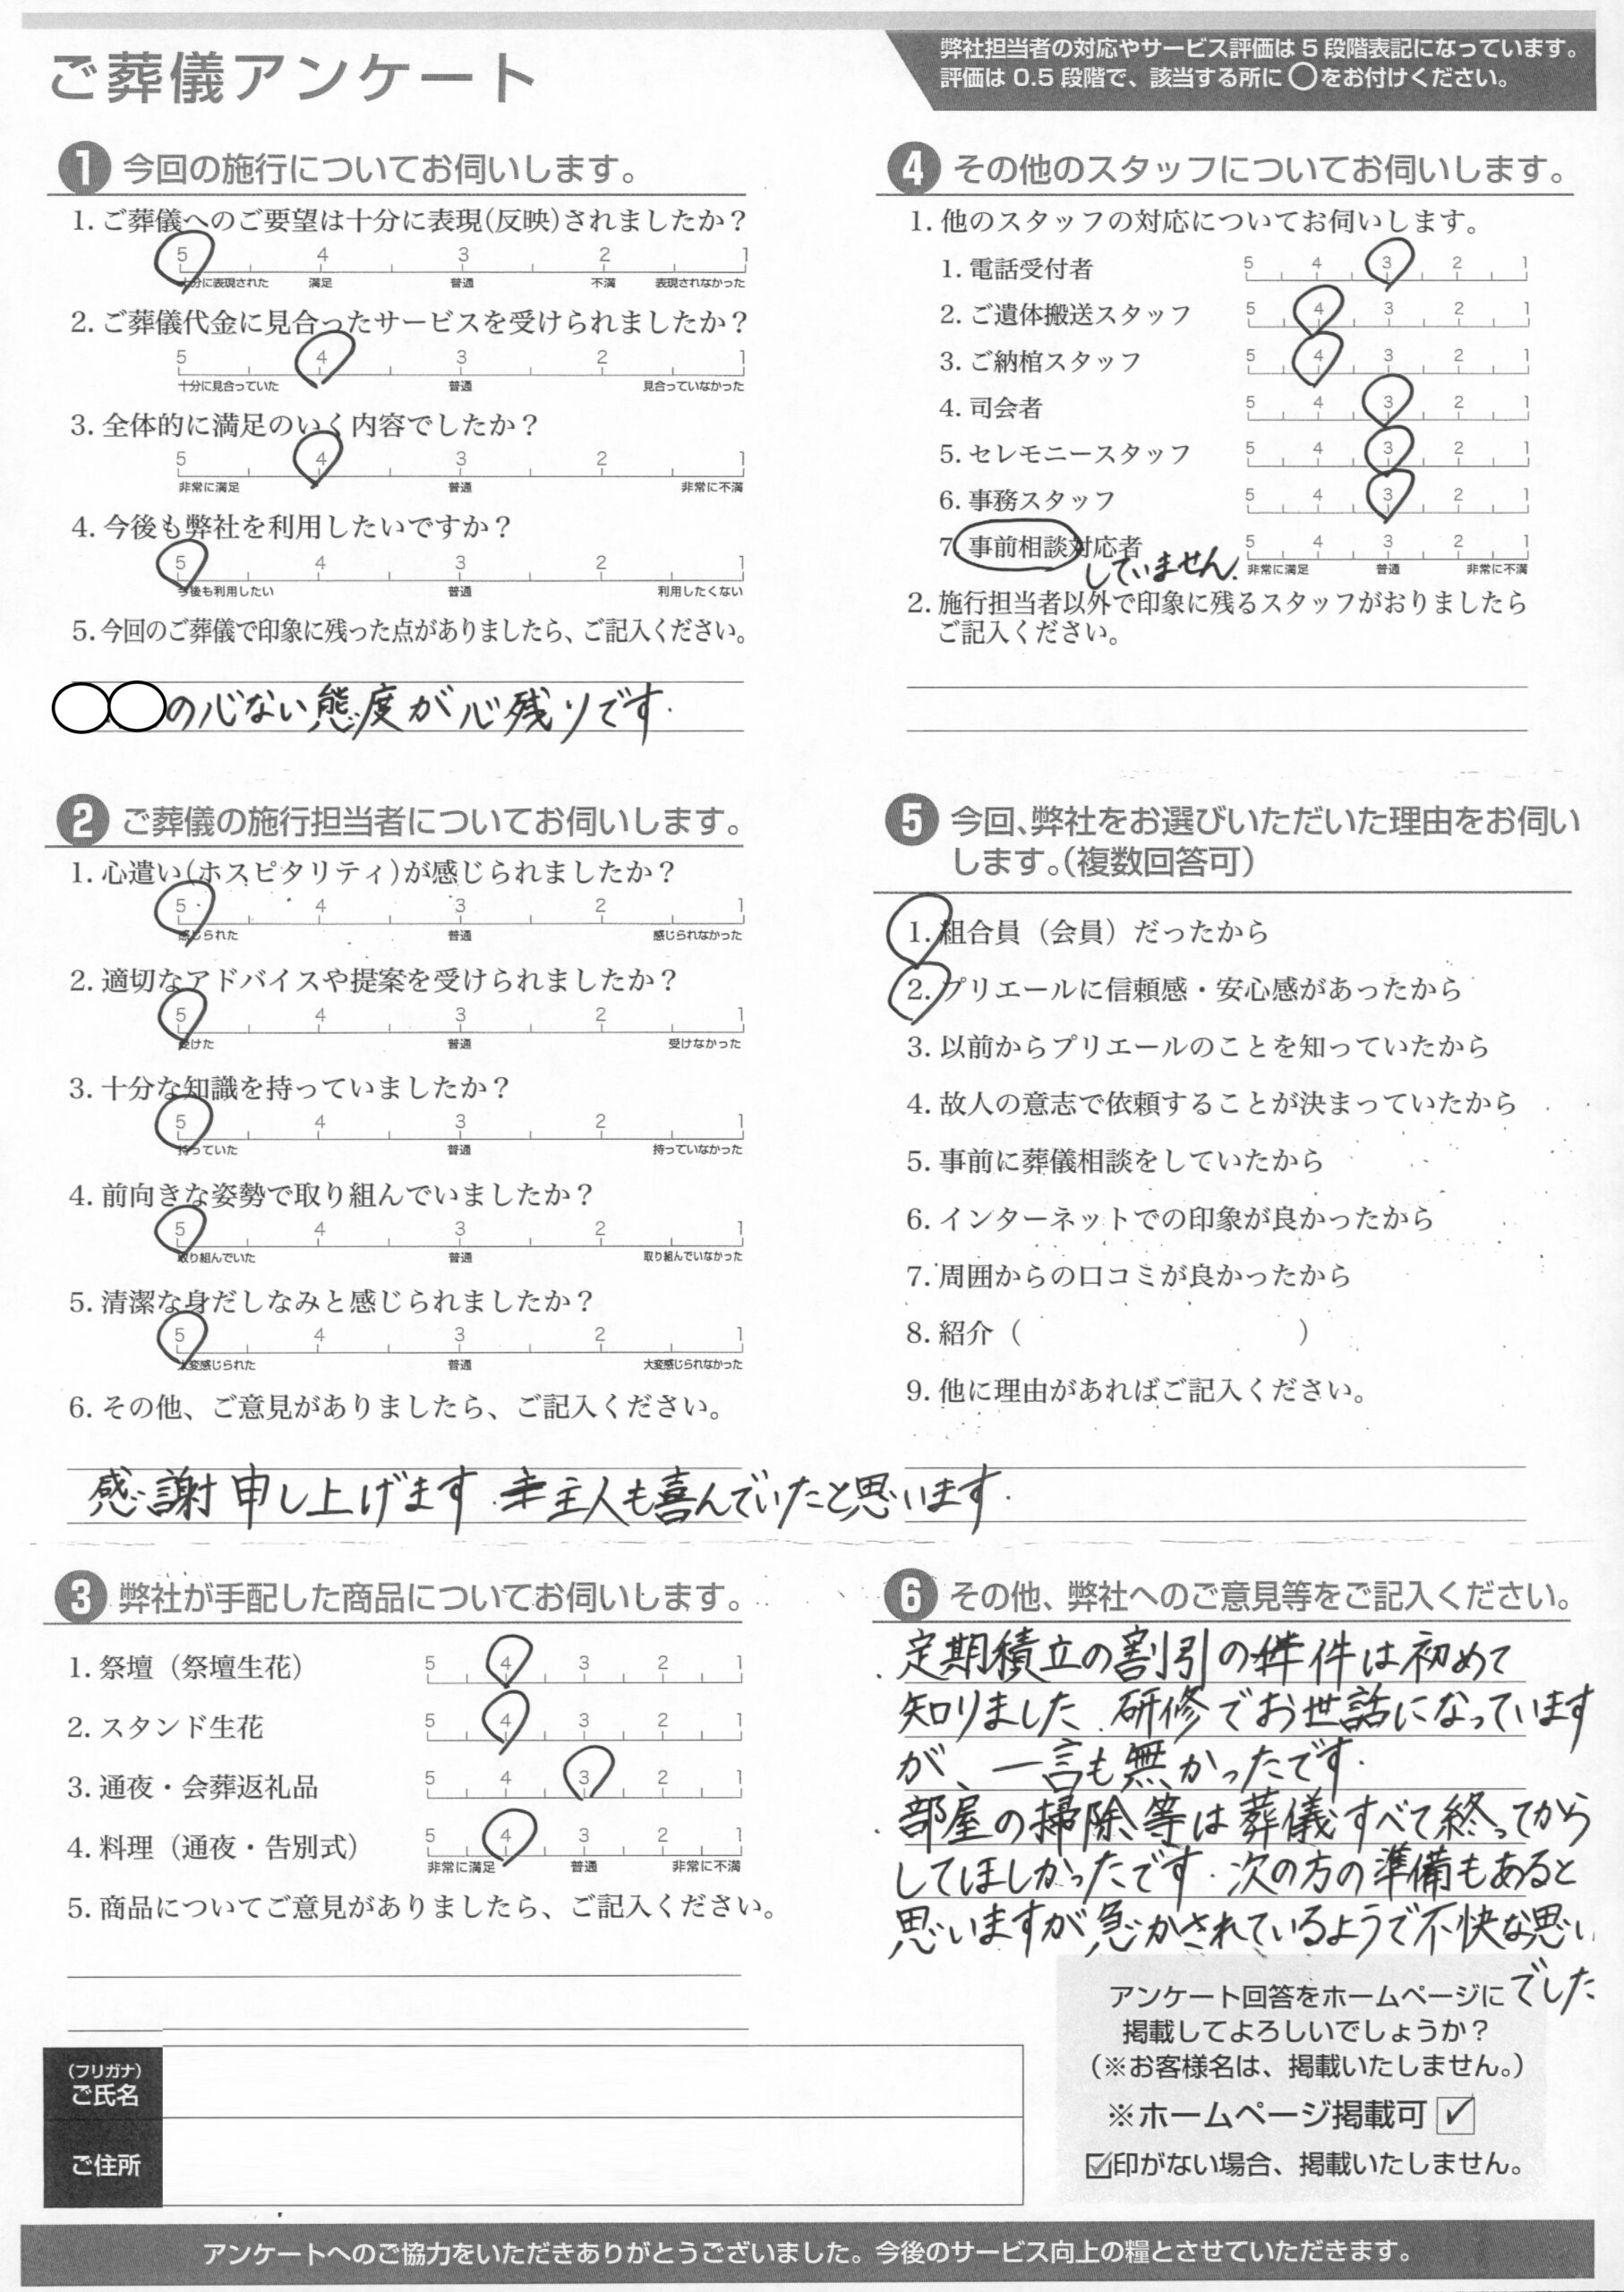 ご葬儀アンケート
弊社担当者の対応やサービス評価は5段階表記になっています。
評価は0.5段階で、該当する所に○をお付けください。
1 今回の施行についてお伺いします。
1. ご葬儀へのご要望は十分に表現(反映)されましたか？
5 4 3 2 1
十分に表現された 満足 普通 不満 表現されなかった
2. ご葬儀代金に見合ったサービスを受けられましたか？
5 4 3 2 1
十分に見合っていた 普通 見合っていなかった
3. 全体的に満足のいく内容でしたか？
5 4 3 2 1
非常に満足 普通 非常に不満
4. 今後も弊社を利用したいですか？
5 4 3 2 1
今後も利用したい 普通 利用したくない
5. 今回のご葬儀で印象に残った点がありましたら、ご記入ください。
○○の心ない態度が心残りです.
2 ご葬儀の施行担当者についてお伺いします。
1. 心遣い(ホスピタリティ)が感じられましたか？
5 4 3 2 1
感じられた 普通 感じられなかった
2. 適切なアドバイスや提案を受けられましたか？
5 4 3 2 1
受けた 普通 受けなかった
3. 十分な知識を持っていましたか？
5 4 3 2 1
持っていた 普通 持っていなかった
4. 前向きな姿勢で取り組んでいましたか？
5 4 3 2 1
取り組んでいた 普通 取り組んでいなかった
5. 清潔な身だしなみと感じられましたか？
5 4 3 2 1
大変感じられた 普通 大変感じられなかった
6. その他、ご意見がありましたら、ご記入ください。
感謝申し上げます. 主人も喜んでいたと思います.
3 弊社が手配した商品についてお伺いします。
1. 祭壇（祭壇生花） 5 4 3 2 1
2. スタンド生花 5 4 3 2 1
3. 通夜・会葬返礼品 5 4 3 2 1
4. 料理（通夜・告別式） 5 4 3 2 1
非常に満足 普通 非常に不満
5. 商品についてご意見がありましたら、ご記入ください。
4 その他のスタッフについてお伺いします。
1. 他のスタッフの対応についてお伺いします。
1. 電話受付者 5 4 3 2 1
2. ご遺体搬送スタッフ 5 4 3 2 1
3. ご納棺スタッフ 5 4 3 2 1
4. 司会者 5 4 3 2 1
5. セレモニースタッフ 5 4 3 2 1
6. 事務スタッフ 5 4 3 2 1
7. 事前相談対応者 5 4 3 2 1
していません. 非常に満足 普通 非常に不満
2. 施行担当者以外で印象に残るスタッフがおりましたら
ご記入ください。
5 今回、弊社をお選びいただいた理由をお伺い
します。(複数回答可)
1. 組合員（会員）だったから
2. プリエールに信頼感・安心感があったから
3. 以前からプリエールのことを知っていたから
4. 故人の意志で依頼することが決まっていたから
5. 事前に葬儀相談をしていたから
6. インターネットでの印象が良かったから
7. 周囲からの口コミが良かったから
8. 紹介（ ）
9. 他に理由があればご記入ください。
6 その他、弊社へのご意見等をご記入ください。
・定期積立の割引の件は初めて
知りました. 研修でお世話になっています
が、一言も無かったです.
・部屋の掃除等は葬儀すべて終ってから
してほしかったです. 次の方の準備もあると
思いますが急かされているようで不快な思い
でした
アンケート回答をホームページに
掲載してよろしいでしょうか？
(※お客様名は、掲載いたしません。)
※ホームページ掲載可 ☑
☑印がない場合、掲載いたしません。
(フリガナ)
ご氏名
ご住所
アンケートへのご協力をいただきありがとうございました。今後のサービス向上の糧とさせていただきます。